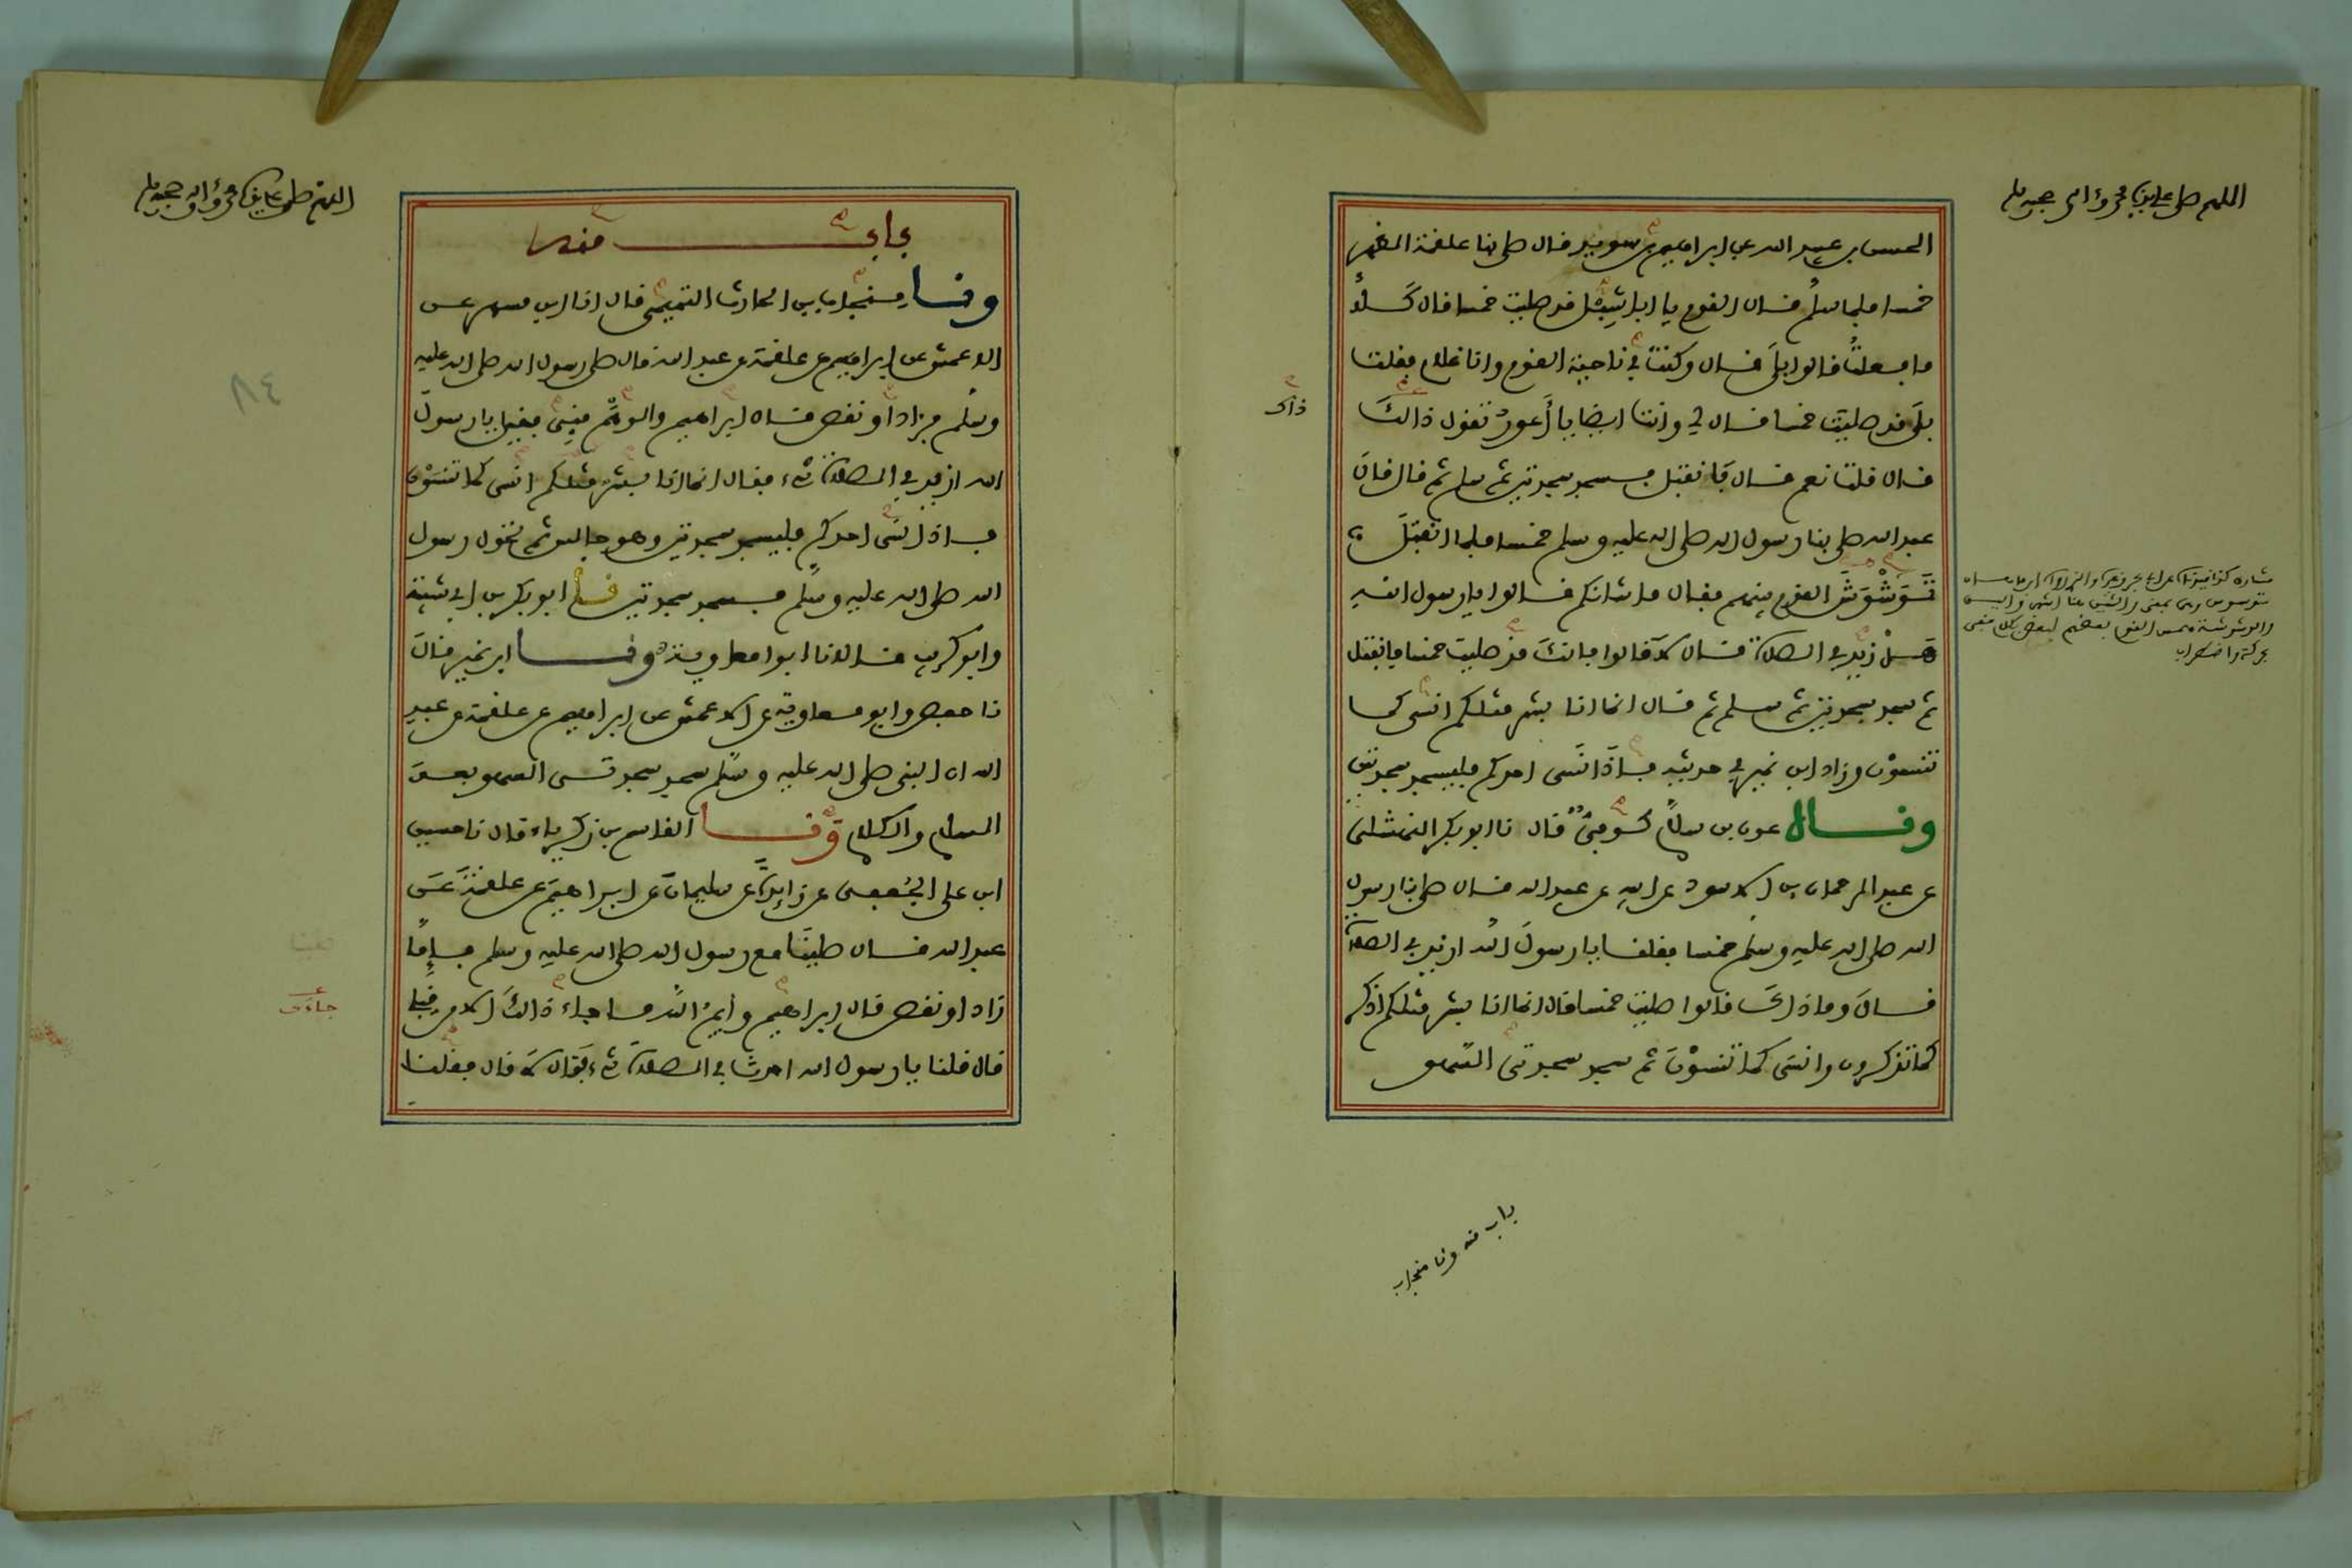 اللهم صل على سيدنا محمد وءاله وصحبه وسلم
الحسن بن عبيد الله عن ابراهيم بن سويد قال صلى بنا علقمة الظهر
خمسا فلما سلم قال القوم يا ابا شبل قد صليت خمسا قال كلا
ما فعلت قالوا بلى قال وكنت في ناحية القوم وانا غلام فقلت
بلى قد صليت خمسا قال لي وانت ايضا يا أعور تقول ذالك
ذاك
قال قلت نعم قال فانفتل فسجد سجدتين ثم سلم ثم قال قال
عبد الله صلى بنا رسول الله صلى الله عليه وسلم خمسا فلما انفتل
توشوش القوم بينهم فقال ما شانكم قالوا يا رسول الله
هل زيد في الصلاة قال لا قالوا فانك قد صليت خمسا فانفتل
ثم سجد سجدتين ثم سلم ثم قال انما انا بشر مثلكم انسى كما
تنسون وزاد ابن نمير في حديثه فاذا نسى احدكم فليسجد سجدتين
وفال عون بن سلام كوفي قال نا ابو بكر النهشلي
عن عبد الرحمان بن الاسود عن ابيه عن عبد الله قال صلى بنا رسول
الله صلى الله عليه وسلم خمسا فقلنا يا رسول الله ازيد في الصلاة
قال وما ذاك قالوا صليت خمسا قال انما انا بشر مثلكم اذكر
كما تذكرون وانسى كما تنسون ثم سجد سجدتي السهو
باب منه ونا منجاب
اللهم صل على سيدنا محمد وءاله وصحبه وسلم
٨٤
باب منه
ونا منجاب بن الحارث التميمي قال انا ابن مسهر عن
الاعمش عن ابراهيم عن علقمة عن عبد الله قال صلى رسول الله صلى الله عليه
وسلم فزاد أو نقص قال ابراهيم والوهم مني فقيل يا رسول
الله ازيد في الصلاة شيء فقال انما انا بشر مثلكم انسى كما تنسون
فاذا نسى احدكم فليسجد سجدتين وهو جالس ثم تحول رسول
الله صلى الله عليه وسلم فسجد سجدتين نا ابو بكر بن ابي شيبة
وابو كريب قالا نا ابو معاوية ونا ابن نمير قال
نا حفص وابو معاوية عن الاعمش عن ابراهيم عن علقمة عن عبد
الله ان النبي صلى الله عليه وسلم سجد سجدتي السهو بعد
السلام والكلام ونا القاسم بن زكرياء قال نا حسين
ابن علي الجعفي عن زايدة عن سليمان عن ابراهيم عن علقمة عن
عبد الله قال صلينا مع رسول الله صلى الله عليه وسلم فإما
زاد او نقص قال ابراهيم وأيم الله ما جاء ذالك الا من قبلي
قال قلنا يا رسول الله احدث في الصلاة شيء فقال لا قال فقلنا